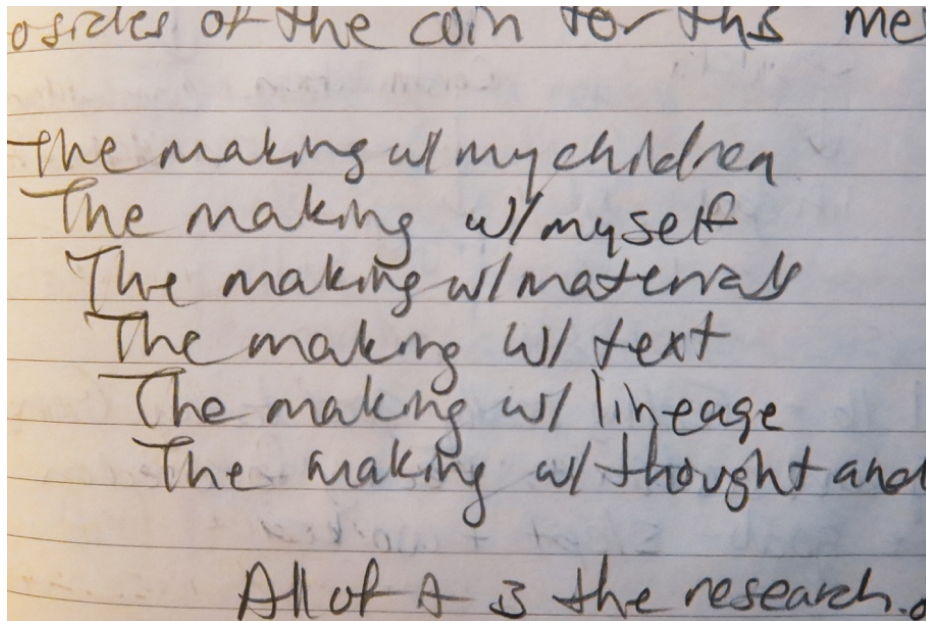 osides of the coin for this me
The making w/ my children
The making w/ myself
The making w/ materials
The making w/ text
The making w/ lineage
The making w/ thought and
All of it is the research.